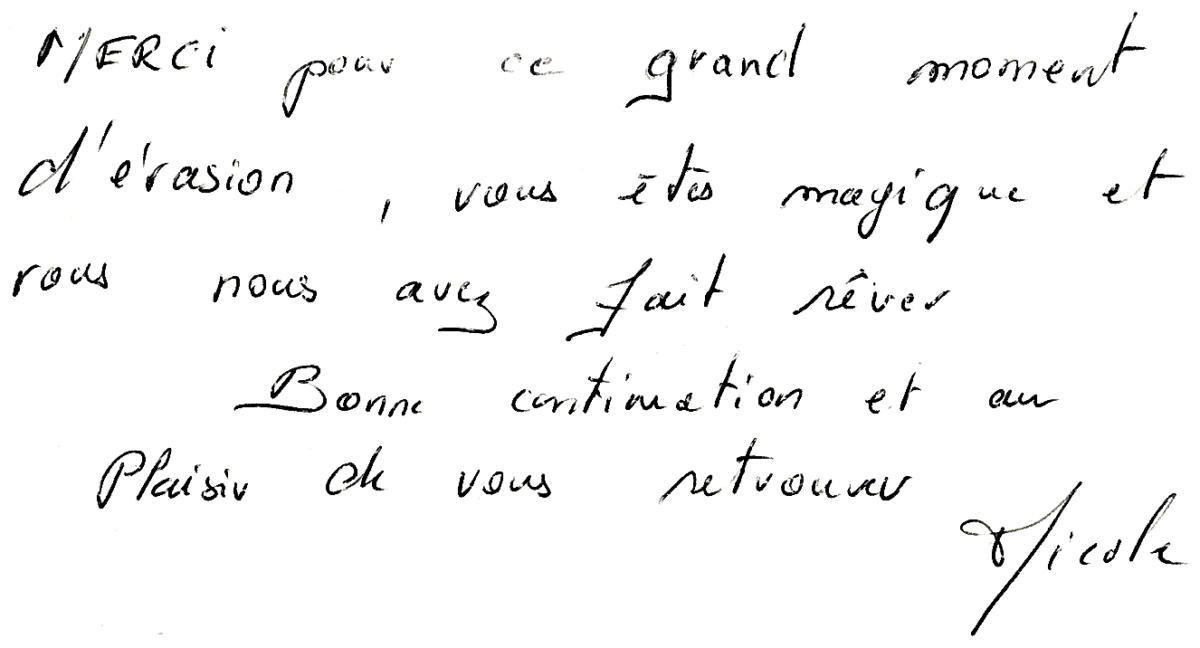 MERCi pour ce grand moment
d'évasion, vous êtes magique et
vous nous avez fait rêver
Bonne continuation et au
Plaisir de vous retrouver
Nicole